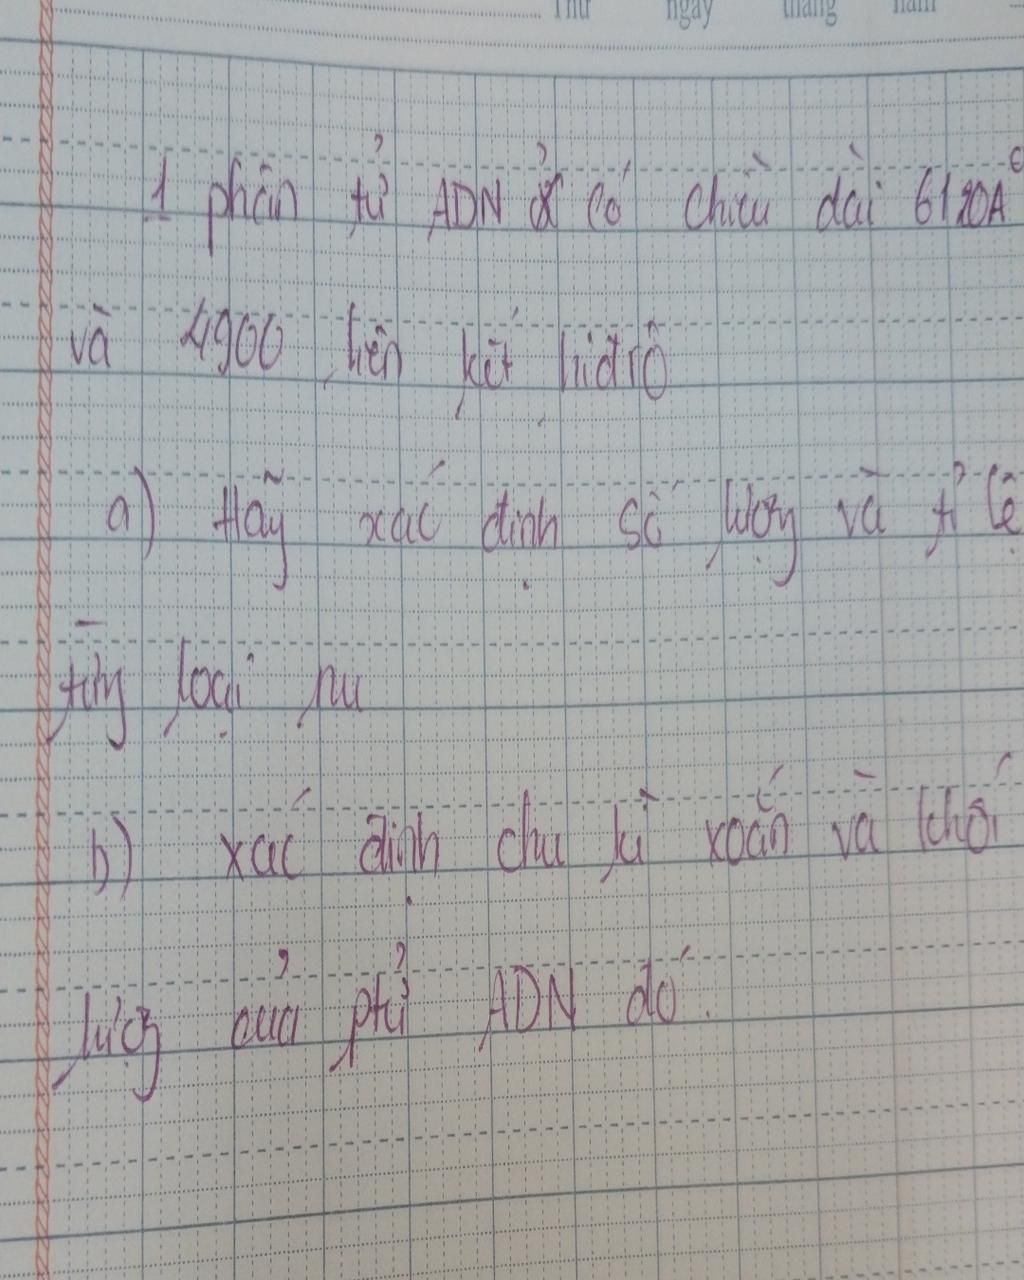 Thứ ngày tháng năm
1 phân tử ADN có chiều dài 6120A°
và 4900 liên kết hiđrô
a) Hãy xác định số lượng và tỉ lệ
từng loại nu
b) xác định chu kì xoắn và khối
lượng của ptử ADN đó.